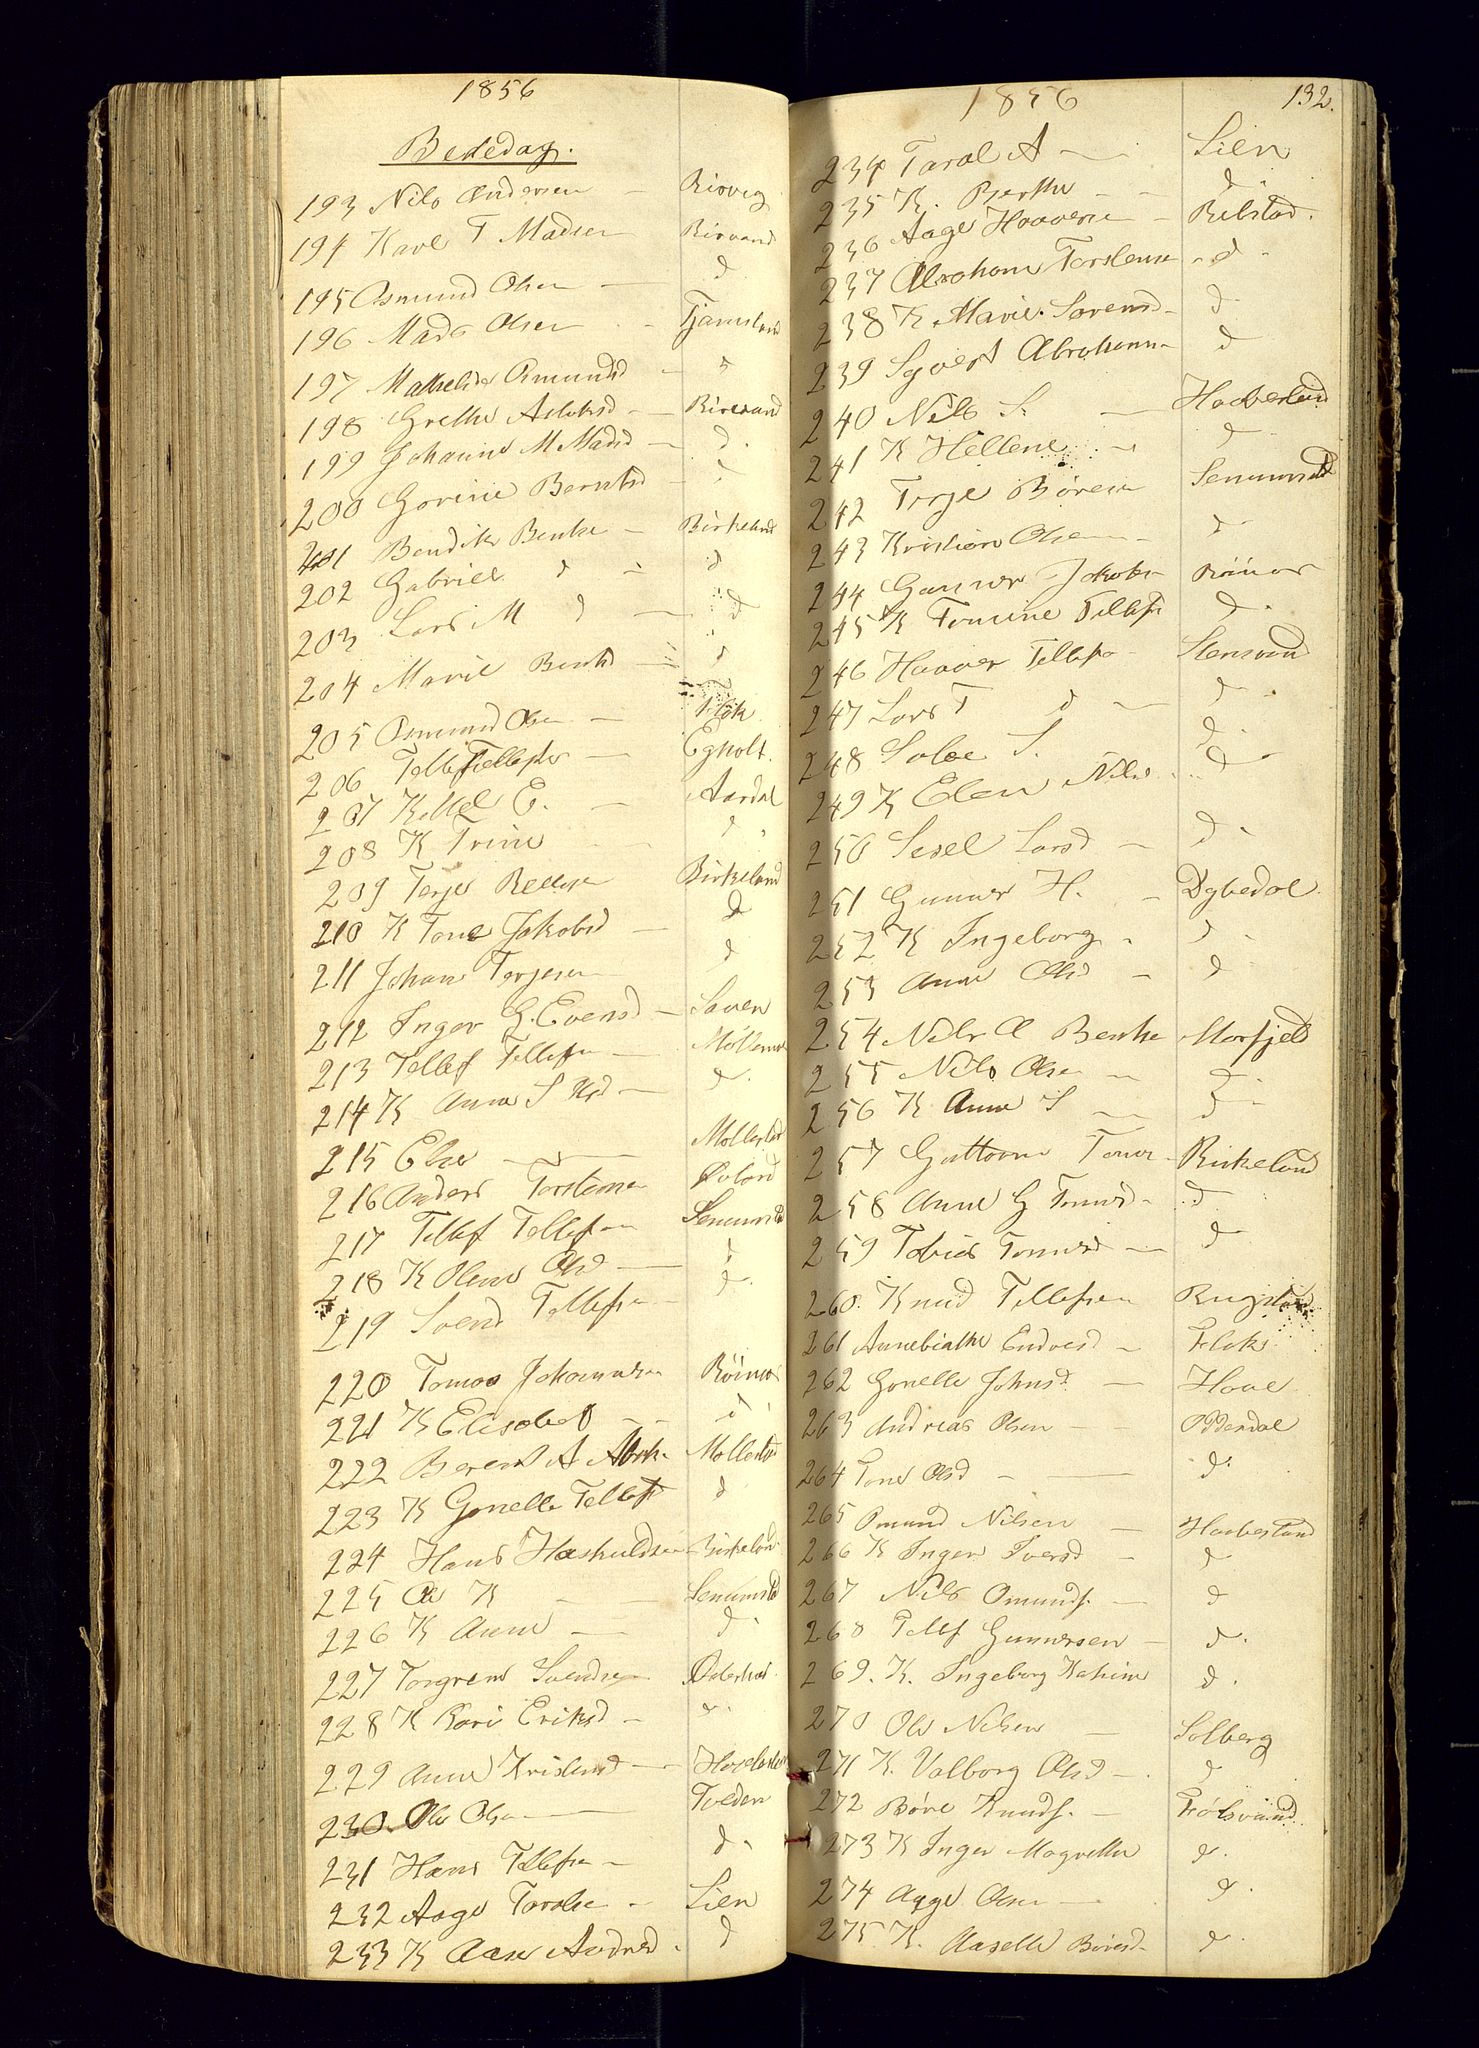 1856
Bededag.
193 Nils Andersen - Risvig
194 Karl T Madsen Birvand
195 Osmund Olsen - d
196 Mads Olsen - Tjamsland
197 Mathilde Omundsd - "
198 Grethe Aslaksd - Birvand
199 Johanne M Madsd - d.
200 Gorine Berntsd - "
201 Bendik Bentse - Birkeland
202 Gabriel d - d
203 Lars M d - d
204 Marie Bentsd - d
205 Osmund Olsen - Flak
206 Tellef Tellefsen - Egholt.
207 Kittel E. - Aardal
208 K Trine d
209 Terje Rellefsen Birkeland
210 K Tone Jakobsd - d
211 Johan Terjesen d
212 Inger G. Evensd - Saven
213 Tellef Tellefsen - Møllemoe
214 K Anne S Olsd - d.
215 Else - Mollestad
216 Anders Torstensen Øvland
217 Tellef Tellefsen Senumstad
218 K Olene Olsd - d
219 Svend Tellefsen d.
220 Tomas Johannesen Röinaas
221 K Elisabet - d
222 Berent A - Mollestad
223 K Gonelle Tellefsd d
224 Hans Haskuldsen Birkeland
225 Ole K - Senumstad
226 K Anne - d.
227 Torgrem Svendsen Oddersdal
228 K Kari Eriksd - d.
229 Anne Kristensd -
230 Ole Olsen - Tveden
231 Hans Tellefsen - d.
232 Aage Taralsen - Lien
233 K Aase Andersd. d
1856 132.
234 Taral A - Lien
235 K. Berthe - d
236 Aage Haaversen - Rilstad.
237 Abraham Torstensen - d -
238 K Marie Sorensd - d
239 Syvert Abrahamsen - d
240 Nils S. - Haaberland
241 K Hellene - d
242 Terje Børesen Senumstad
243 Kristian Olsen - d
244 Gunner Jakobsen Röinaas
245 K Tomine Tellefsd d.
246 Haaver Tellefsen - Stensvand
247 Lars T d - d -
248 Salve S. d.
249 K Elen Nilsd - d
250 Sesel Larsd - d -
251 Gunner H. - Dybedal
252 K Ingeborg - d -
253 Anne Olsd - d
254 Nils A Bentse Morfjeld
255 Nils Olsen - d -
256 K Anne S - d -
257 Guttorm Tomesen Birkeland
258 Anne G Tomesd - d
259 Tobias Tomesd - d
260. Knud Tellefsen
261 Annebirthe Endresd - Flaks.
262 Gonelle Johnsd. - Hove
263 Andreas Olsen - Oddersdal
264 Tone Olsd - d.
265 Omund Nilsen - Haaberland
266 K Inger Iversd - d
267 Nils Omunds. - d
268 Tellef Gunnersen - d.
269. K. Ingeborg Kathrine d.
270 Ole Nilsen - Solberg
271 K. Valborg Olsd - d
272 Børe Knuds. - Frölsvand.
273 K Inger Magrethe d.
274 Aage Olsen - d.
275 K. Aaselle Børesd - d.